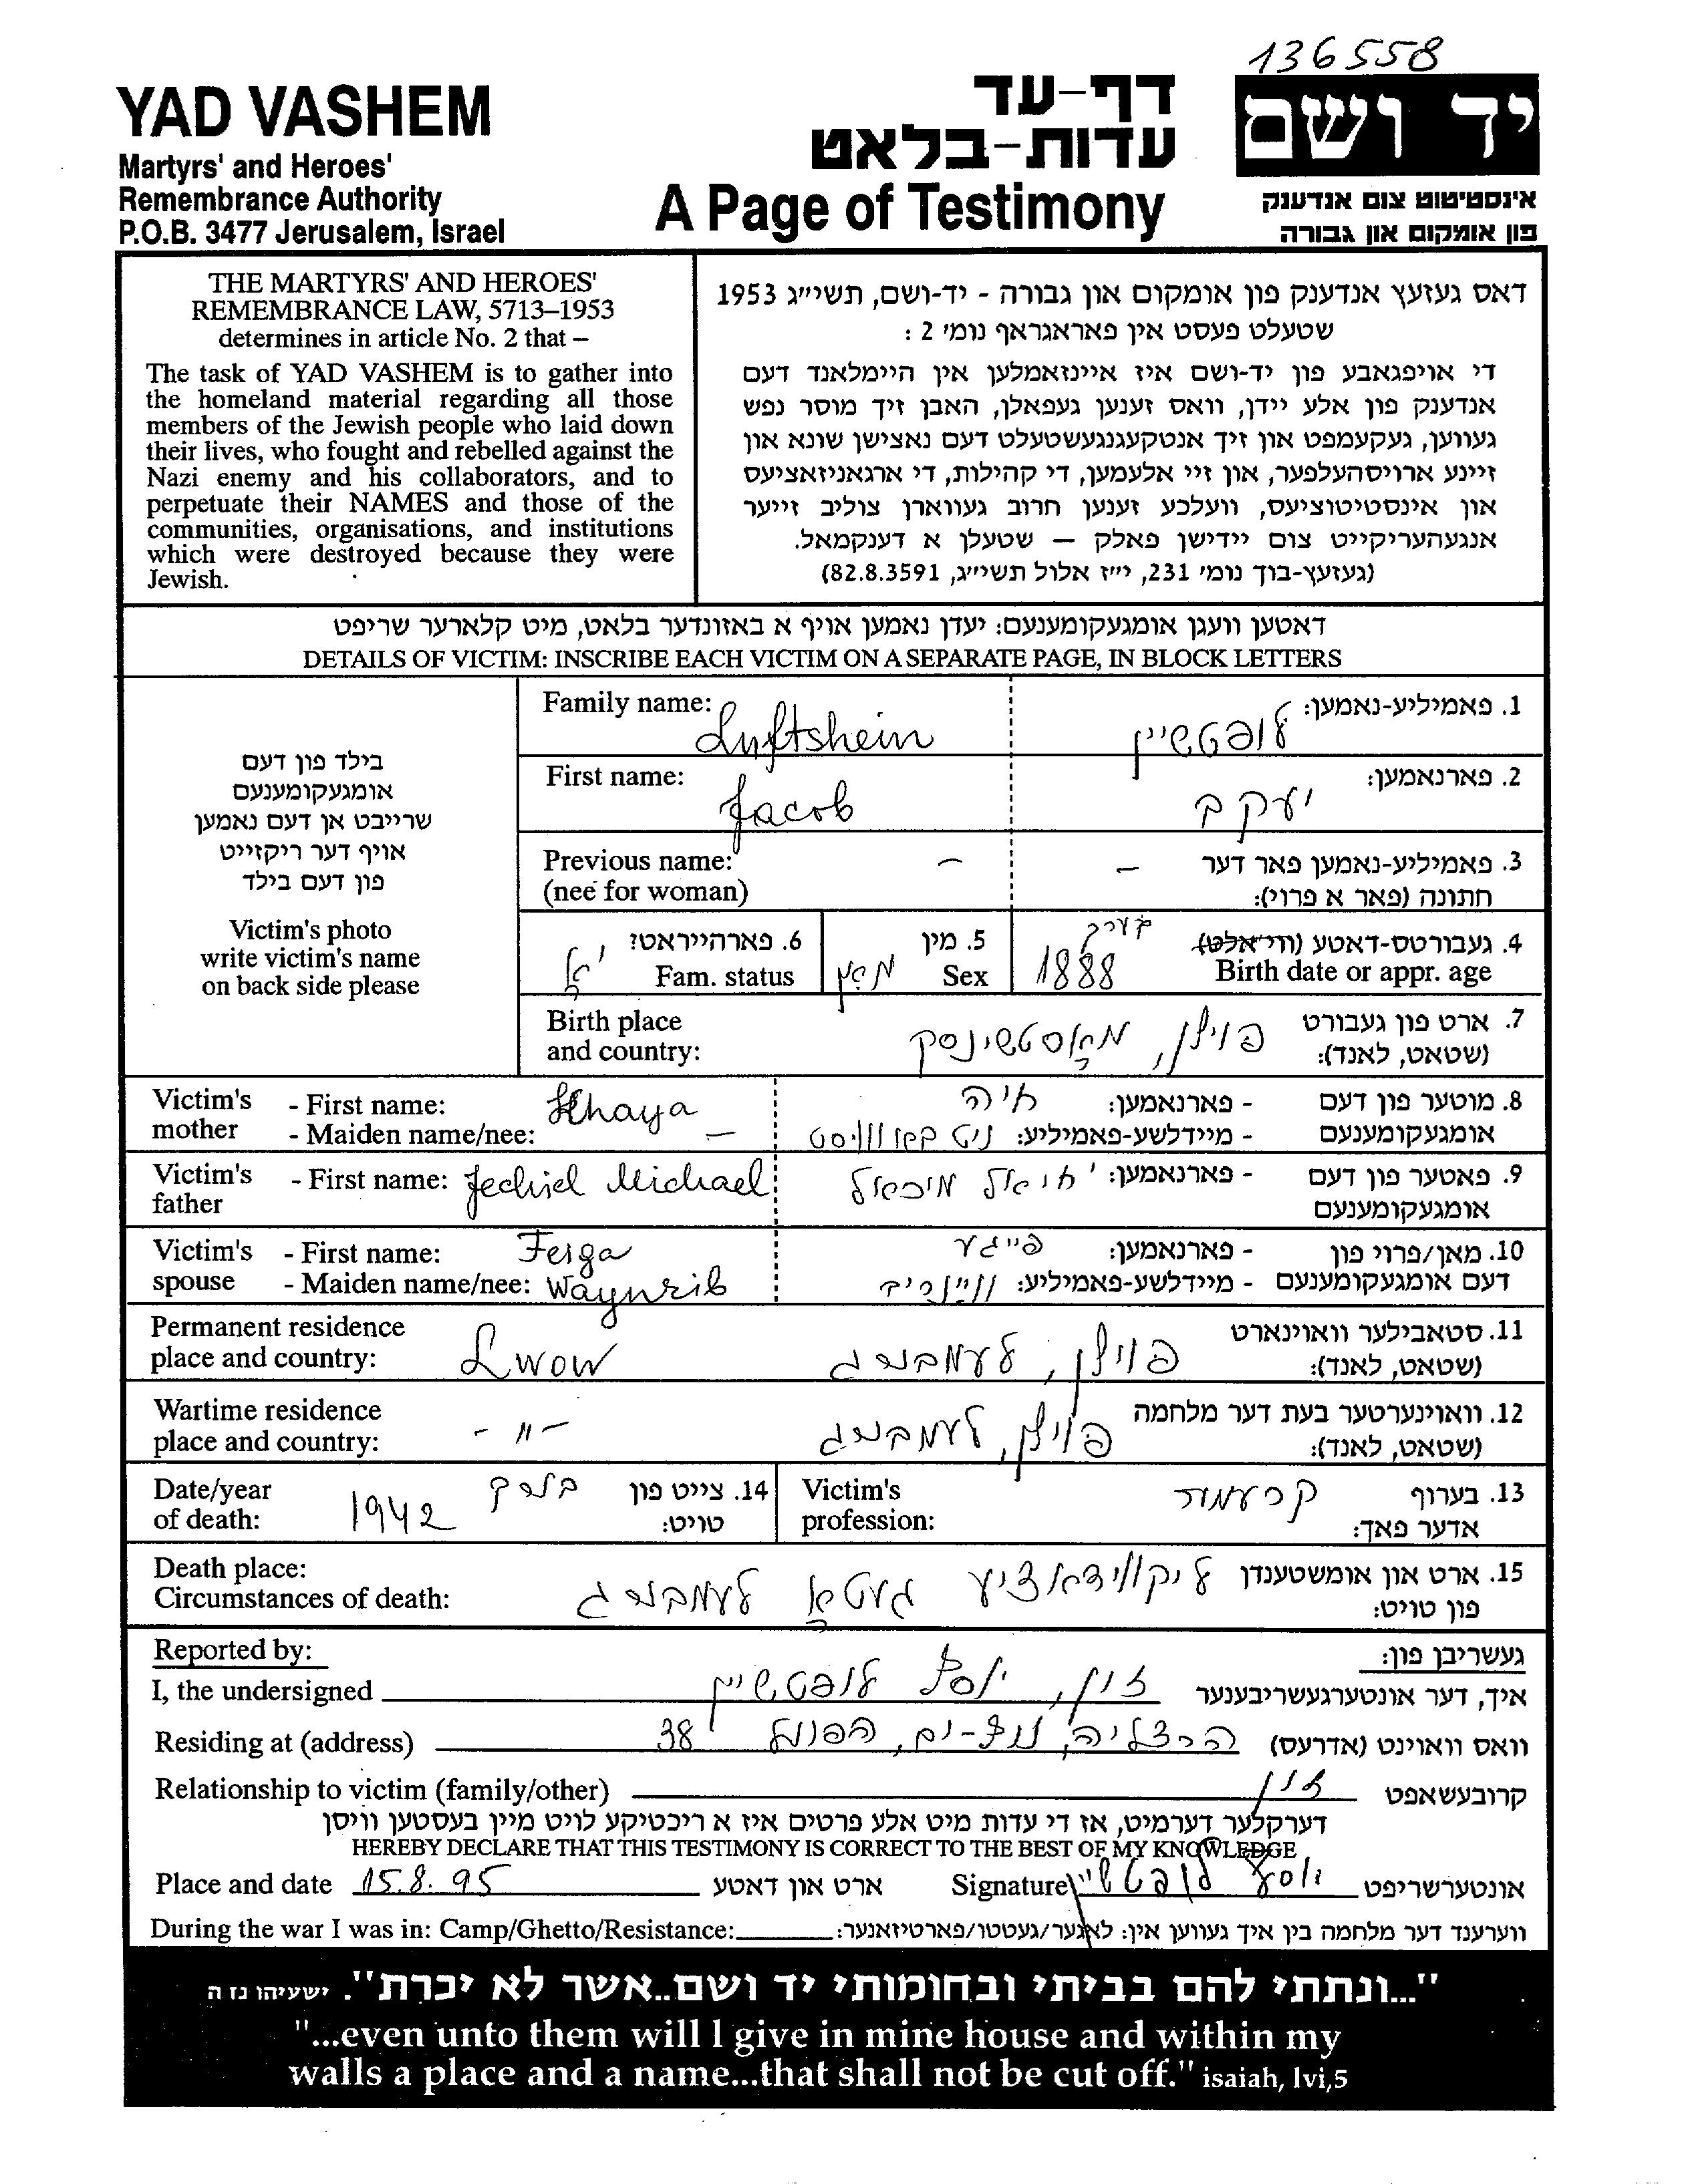 136558
YAD VASHEM
Martyrs' and Heroes'
Remembrance Authority
P.O.B. 3477 Jerusalem, Israel
דף-עד
עדות-בלאט
A Page of Testimony
יד ושם
אינסטיטוט צום אנדענק
פון אומקום און גבורה
THE MARTYRS' AND HEROES'
REMEMBRANCE LAW, 5713–1953
determines in article No. 2 that –
The task of YAD VASHEM is to gather into
the homeland material regarding all those
members of the Jewish people who laid down
their lives, who fought and rebelled against the
Nazi enemy and his collaborators, and to
perpetuate their NAMES and those of the
communities, organisations, and institutions
which were destroyed because they were
Jewish.
דאס געזעץ אנדענק פון אומקום און גבורה - יד-ושם, תשי״ג 1953
שטעלט פעסט אין פאראגראף נומ׳ 2 :
די אויפגאבע פון יד-ושם איז איינזאמלען אין היימלאנד דעם
אנדענק פון אלע יידן, וואס זענען געפאלן, האבן זיך מוסר נפש
געווען, געקעמפט און זיך אנטקעגנגעשטעלט דעם נאצישן שונא און
זיינע ארויסהעלפער, און זיי אלעמען, די קהילות, די ארגאניזאציעס
און אינסטיטוציעס, וועלכע זענען חרוב געווארן צוליב זייער
אנגעהעריקייט צום יידישן פאלק — שטעלן א דענקמאל.
(געזעץ-בוך נומ׳ 231, י״ז אלול תשי״ג, 82.8.3591)
דאטען וועגן אומגעקומענעם: יעדן נאמען אויף א באזונדער בלאט, מיט קלארער שריפט
DETAILS OF VICTIM: INSCRIBE EACH VICTIM ON A SEPARATE PAGE, IN BLOCK LETTERS
בילד פון דעם
אומגעקומענעם
שרייבט אן דעם נאמען
אויף דער ריקזייט
פון דעם בילד
Victim's photo
write victim's name
on back side please
Family name: Luftshein לופטשיין 1. פאמיליע-נאמען:
First name: Jacob יעקב 2. פארנאמען:
Previous name: – – 3. פאמיליע-נאמען פאר דער
(neé for woman) חתונה (פאר א פרוי):
יא 6. פארהייראט? מאן 5. מין 4. געבורטס-דאטע (ווי אלט)
Fam. status Sex 1888 Birth date or appr. age
Birth place פוילן, מאסטשיסק 7. ארט פון געבורט
and country: (שטאט, לאנד):
Victim's - First name: Khaya חיה - פארנאמען: 8. מוטער פון דעם
mother - Maiden name/nee: – ניט באוווסט - מיידלשע-פאמיליע: אומגעקומענעם
Victim's - First name: Jechiel Michael יחיאל מיכאל - פארנאמען: 9. פאטער פון דעם
father אומגעקומענעם
Victim's - First name: Feiga פייגע - פארנאמען: 10. מאן/פרוי פון
spouse - Maiden name/nee: Waynrib וויינריב - מיידלשע-פאמיליע: דעם אומגעקומענעם
Permanent residence 11. סטאבילער וואוינארט
place and country: Lwow פוילן, לעמבערג (שטאט, לאנד):
Wartime residence 12. וואוינערטער בעת דער מלחמה
place and country: - 〃 - פוילן, לעמבערג (שטאט, לאנד):
Date/year 1942 בערך 14. צייט פון Victim's קרעמער 13. בערוף
of death: טויט: profession: אדער פאך:
Death place: 15. ארט און אומשטענדן
Circumstances of death: ליקווידאציע געטא לעמבערג פון טויט:
Reported by: געשריבן פון:
I, the undersigned זון, יוסף לופטשיין איך, דער אונטערגעשריבענער
Residing at (address) הרצליה, נוף-ים, הפועל 38 וואס וואוינט (אדרעס)
Relationship to victim (family/other) זון קרובעשאפט
דערקלער דערמיט, אז די עדות מיט אלע פרטים איז א ריכטיקע לויט מיין בעסטען וויסן
HEREBY DECLARE THAT THIS TESTIMONY IS CORRECT TO THE BEST OF MY KNOWLEDGE
Place and date 15.8.95 ארט און דאטע Signature יוסף לופטשיין אונטערשריפט
During the war I was in: Camp/Ghetto/Resistance: ווערענד דער מלחמה בין איך געווען אין: לאגער/געטטו/פארטיזאנער:
"...ונתתי להם בביתי ובחומותי יד ושם..אשר לא יכרת". ישעיהו נז ה
"...even unto them will I give in mine house and within my
walls a place and a name...that shall not be cut off." isaiah, lvi,5